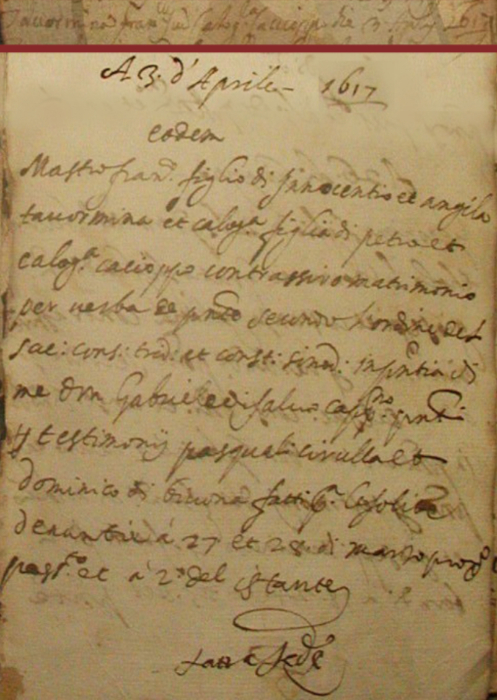 Tavormina fran.co cu Calog.a Cacioppo die 3 Aprilis 1617
A 3. d'Aprile - 1617
eodem
Mastro fran.co figlio di Innocentio et angila
tavormina et calog.a figlia di petro et
calog.a cacioppo contrassiro matrimonio
per verba de pnte secundo l'ordine del
sac: conc: trid: at const: sinod: in pntia di
me don Gabriele di salvo capp.no pnti
testimonij pasquali et
dominico di bivona fatti le solite
denuntie à 27 et 28 di marzo pros.o
pass.to et à 2 del istante